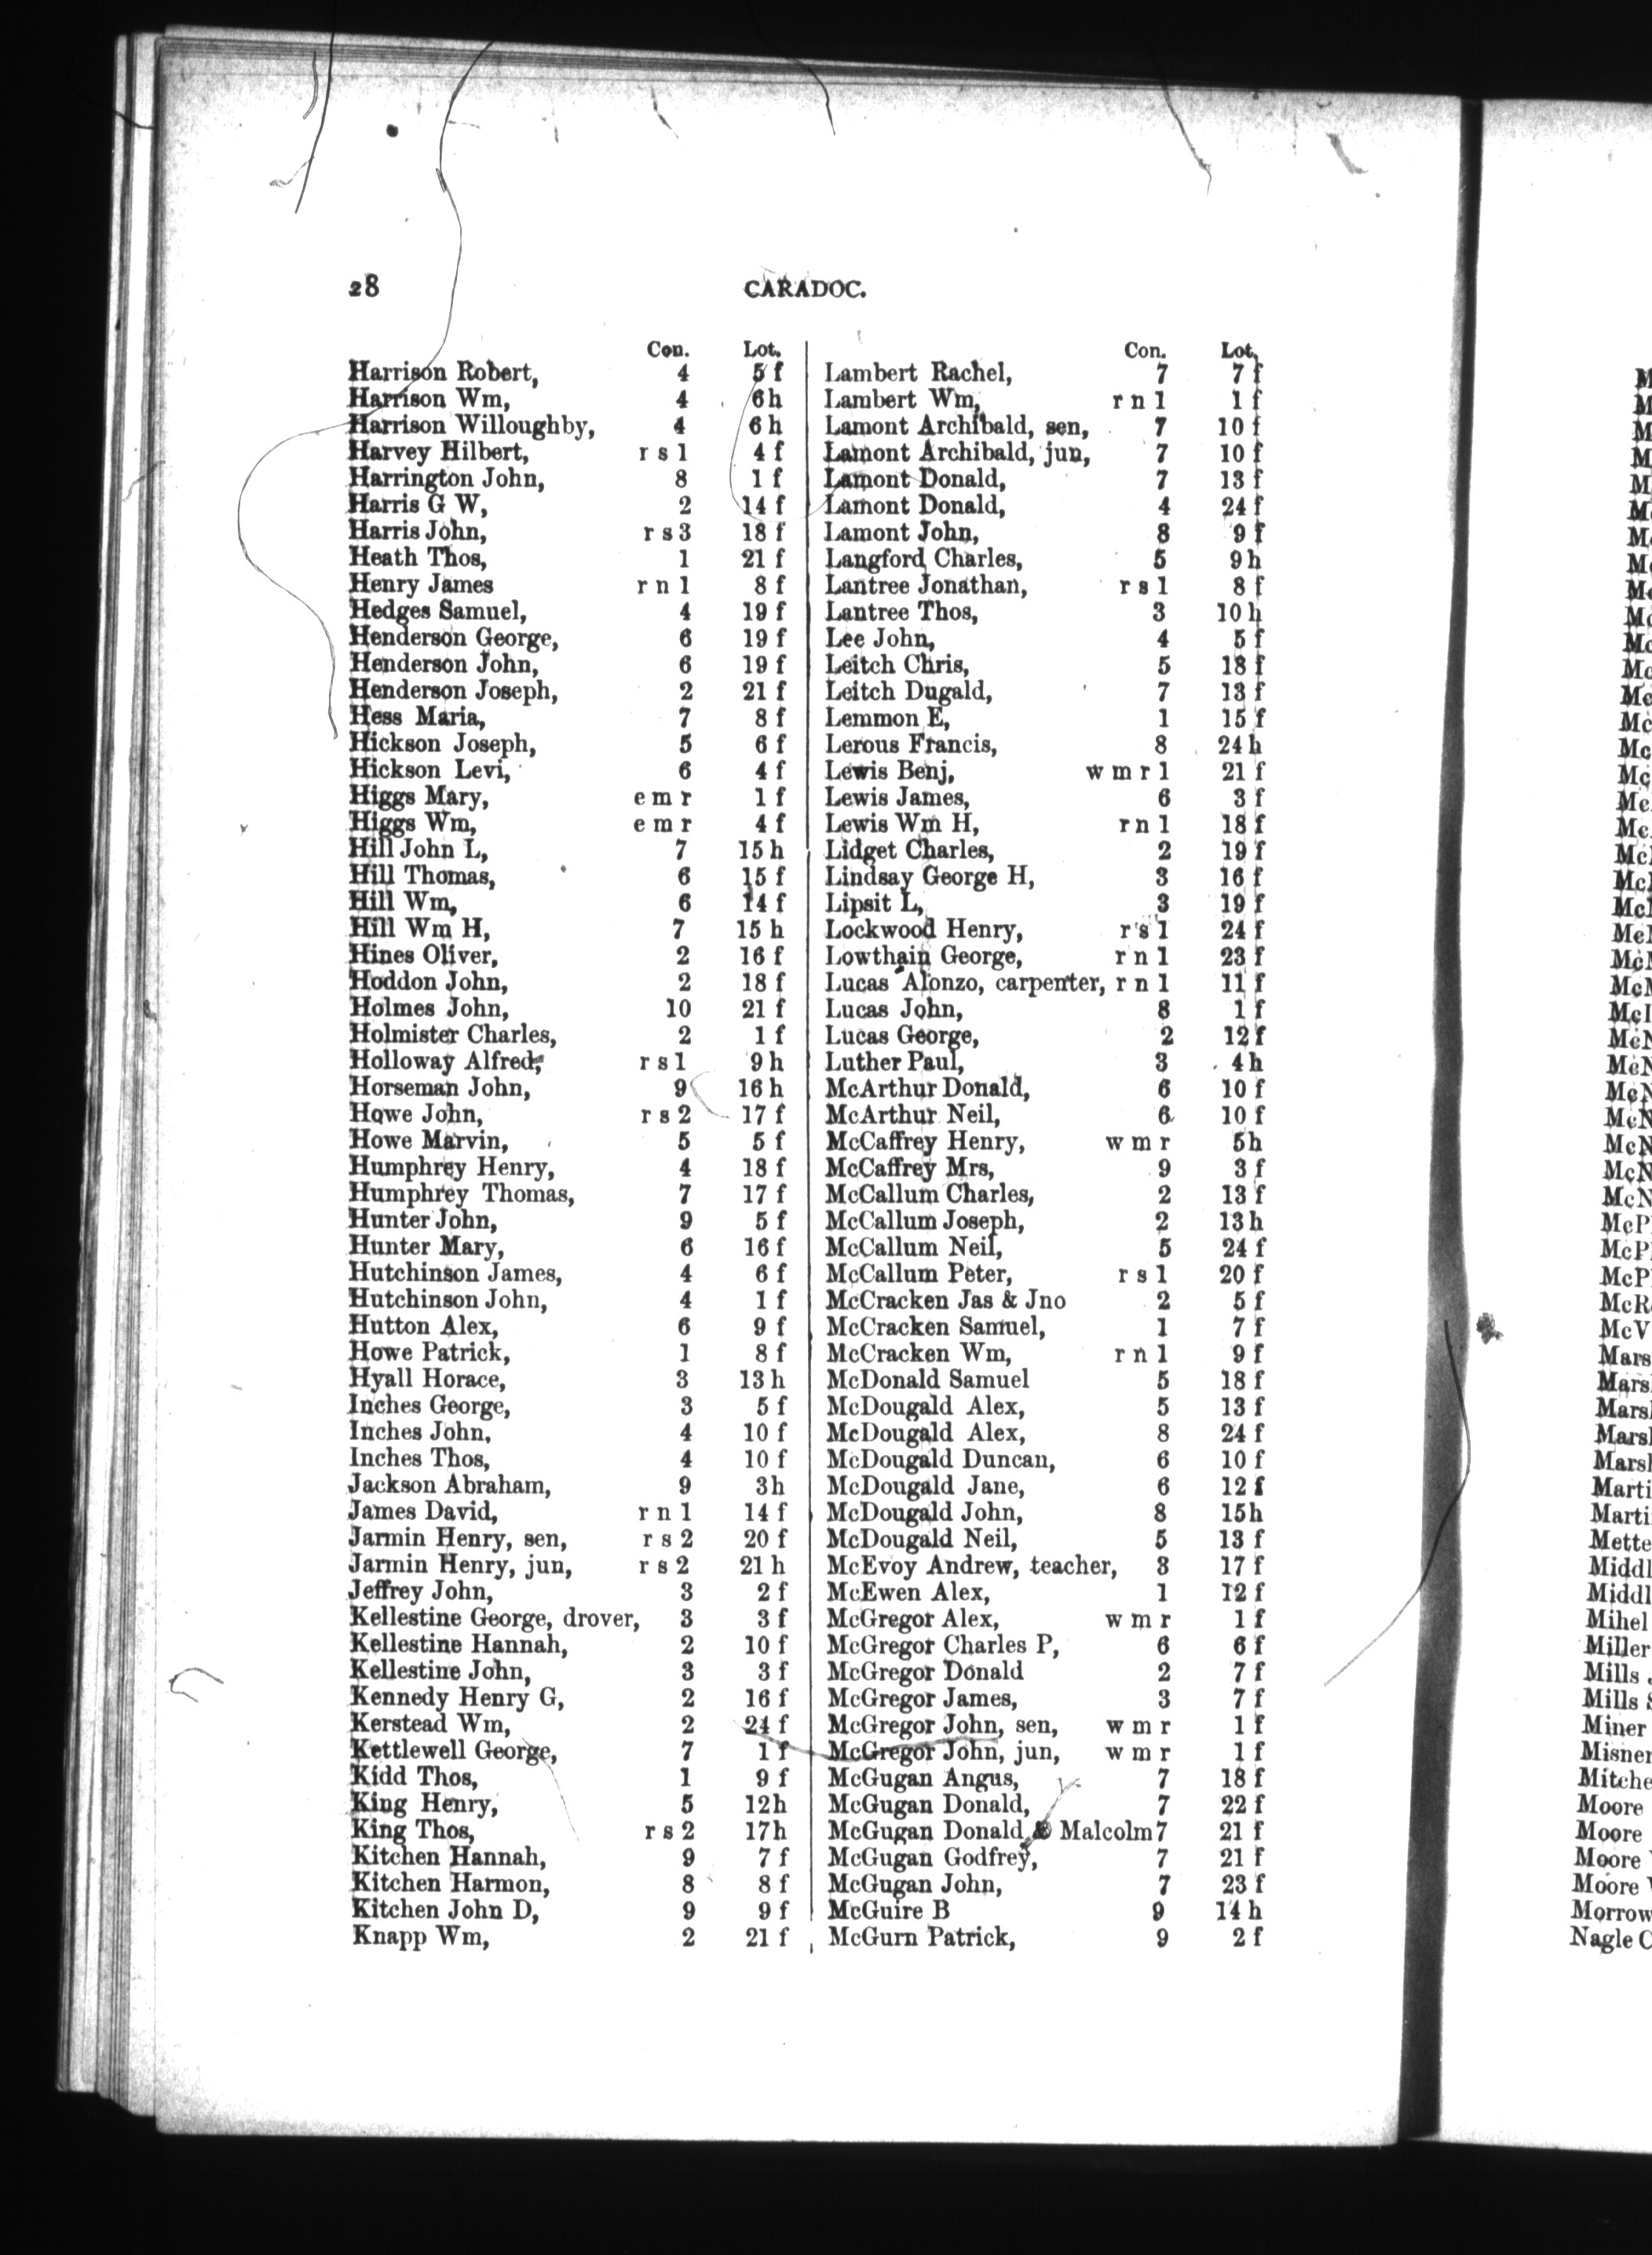 28
CARADOC.
Con. Lot.
Harrison Robert, 4 5 f
Harrison Wm, 4 6 h
Harrison Willoughby, 4 6 h
Harvey Hilbert, r s 1 4 f
Harrington John, 8 1 f
Harris G W, 2 14 f
Harris John, r s 3 18 f
Heath Thos, 1 21 f
Henry James r n 1 8 f
Hedges Samuel, 4 19 f
Henderson George, 6 19 f
Henderson John, 6 19 f
Henderson Joseph, 2 21 f
Hess Maria, 7 8 f
Hickson Joseph, 5 6 f
Hickson Levi, 6 4 f
Higgs Mary, e m r 1 f
Higgs Wm, e m r 4 f
Hill John L, 7 15 h
Hill Thomas, 6 15 f
Hill Wm, 6 14 f
Hill Wm H, 7 15 h
Hines Oliver, 2 16 f
Hoddon John, 2 18 f
Holmes John, 10 21 f
Holmister Charles, 2 1 f
Holloway Alfred, r s 1 9 h
Horseman John, 9 16 h
Howe John, r s 2 17 f
Howe Marvin, 5 5 f
Humphrey Henry, 4 18 f
Humphrey Thomas, 7 17 f
Hunter John, 9 5 f
Hunter Mary, 6 16 f
Hutchinson James, 4 6 f
Hutchinson John, 4 1 f
Hutton Alex, 6 9 f
Howe Patrick, 1 8 f
Hyall Horace, 3 13 h
Inches George, 3 5 f
Inches John, 4 10 f
Inches Thos, 4 10 f
Jackson Abraham, 9 3 h
James David, r n 1 14 f
Jarmin Henry, sen, r s 2 20 f
Jarmin Henry, jun, r s 2 21 h
Jeffrey John, 3 2 f
Kellestine George, drover, 3 3 f
Kellestine Hannah, 2 10 f
Kellestine John, 3 3 f
Kennedy Henry G, 2 16 f
Kerstead Wm, 2 24 f
Kettlewell George, 7 1 f
Kidd Thos, 1 9 f
King Henry, 5 12 h
King Thos, r s 2 17 h
Kitchen Hannah, 9 7 f
Kitchen Harmon, 8 8 f
Kitchen John D, 9 9 f
Knapp Wm, 2 21 f
Con. Lot.
Lambert Rachel, 7 7 f
Lambert Wm, r n 1 1 f
Lamont Archibald, sen, 7 10 f
Lamont Archibald, jun, 7 10 f
Lamont Donald, 7 13 f
Lamont Donald, 4 24 f
Lamont John, 8 9 f
Langford Charles, 5 9 h
Lantree Jonathan, r s 1 8 f
Lantree Thos, 3 10 h
Lee John, 4 5 f
Leitch Chris, 5 18 f
Leitch Dugald, 7 13 f
Lemmon E, 1 15 f
Lerous Francis, 8 24 h
Lewis Benj, w m r 1 21 f
Lewis James, 6 3 f
Lewis Wm H, r n 1 18 f
Lidget Charles, 2 19 f
Lindsay George H, 3 16 f
Lipsit L, 3 19 f
Lockwood Henry, r s 1 24 f
Lowthain George, r n 1 23 f
Lucas Alonzo, carpenter, r n 1 11 f
Lucas John, 8 1 f
Lucas George, 2 12 f
Luther Paul, 3 4 h
McArthur Donald, 6 10 f
McArthur Neil, 6 10 f
McCaffrey Henry, w m r 5 h
McCaffrey Mrs, 9 3 f
McCallum Charles, 2 13 f
McCallum Joseph, 2 13 h
McCallum Neil, 5 24 f
McCallum Peter, r s 1 20 f
McCracken Jas & Jno 2 5 f
McCracken Samuel, 1 7 f
McCracken Wm, r n 1 9 f
McDonald Samuel 5 18 f
McDougald Alex, 5 13 f
McDougald Alex, 8 24 f
McDougald Duncan, 6 10 f
McDougald Jane, 6 12 f
McDougald John, 8 15 h
McDougald Neil, 5 13 f
McEvoy Andrew, teacher, 3 17 f
McEwen Alex, 1 12 f
McGregor Alex, w m r 1 f
McGregor Charles P, 6 6 f
McGregor Donald 2 7 f
McGregor James, 3 7 f
McGregor John, sen, w m r 1 f
McGregor John, jun, w m r 1 f
McGugan Angus, 7 18 f
McGugan Donald, 7 22 f
McGugan Donald & Malcolm 7 21 f
McGugan Godfrey, 7 21 f
McGugan John, 7 23 f
McGuire B 9 14 h
McGurn Patrick, 9 2 f